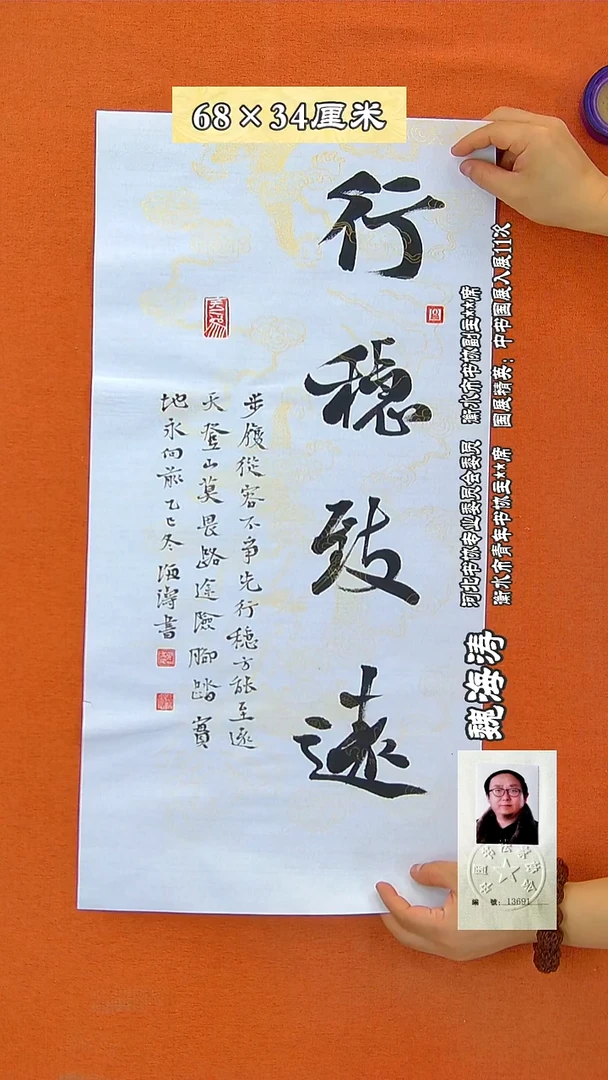 68×34厘米
行穩致遠
步履從容不爭先行穩方能至遠
天登山莫畏路途險腳踏實
地永向前乙巳冬海濤書
河北书协专业委员会委员 衡水市书协副主**席
衡水市青年书协主**席 国展精英：中书国展入展11次
魏海涛
編號：13691